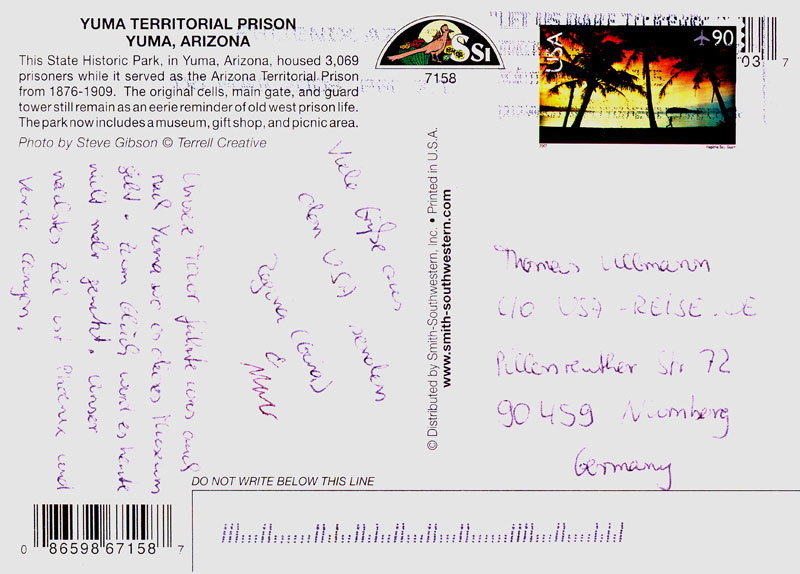 YUMA TERRITORIAL PRISON
YUMA, ARIZONA
This State Historic Park, in Yuma, Arizona, housed 3,069
prisoners while it served as the Arizona Territorial Prison
from 1876-1909. The original cells, main gate, and guard
tower still remain as an eerie reminder of old west prison life.
The park now includes a museum, gift shop, and picnic area.
Photo by Steve Gibson © Terrell Creative
SSI
7158
USA
90
03 7
Unsere Tour führte uns auch
nach Yuma wo es dieses Museum
gibt. Zum Glück wird es heute
nicht mehr genutzt. Unser
nächstes Ziel ist Phoenix und
Verde Canyon.
Viele Grüße aus
den USA senden
Regina (Gina)
&
© Distributed by Smith-Southwestern, Inc. • Printed in U.S.A.
www.smith-southwestern.com
Thomas Ullmann
C/O USA-REISE.DE
Pillenreuther Str 72
90459 Nürnberg
Germany
DO NOT WRITE BELOW THIS LINE
0 86598 67158 7